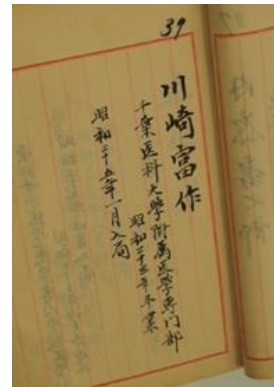 39
川崎富作
千葉医科大學附属医學専門部
昭和二十三年卒業
昭和二十五年一月入局